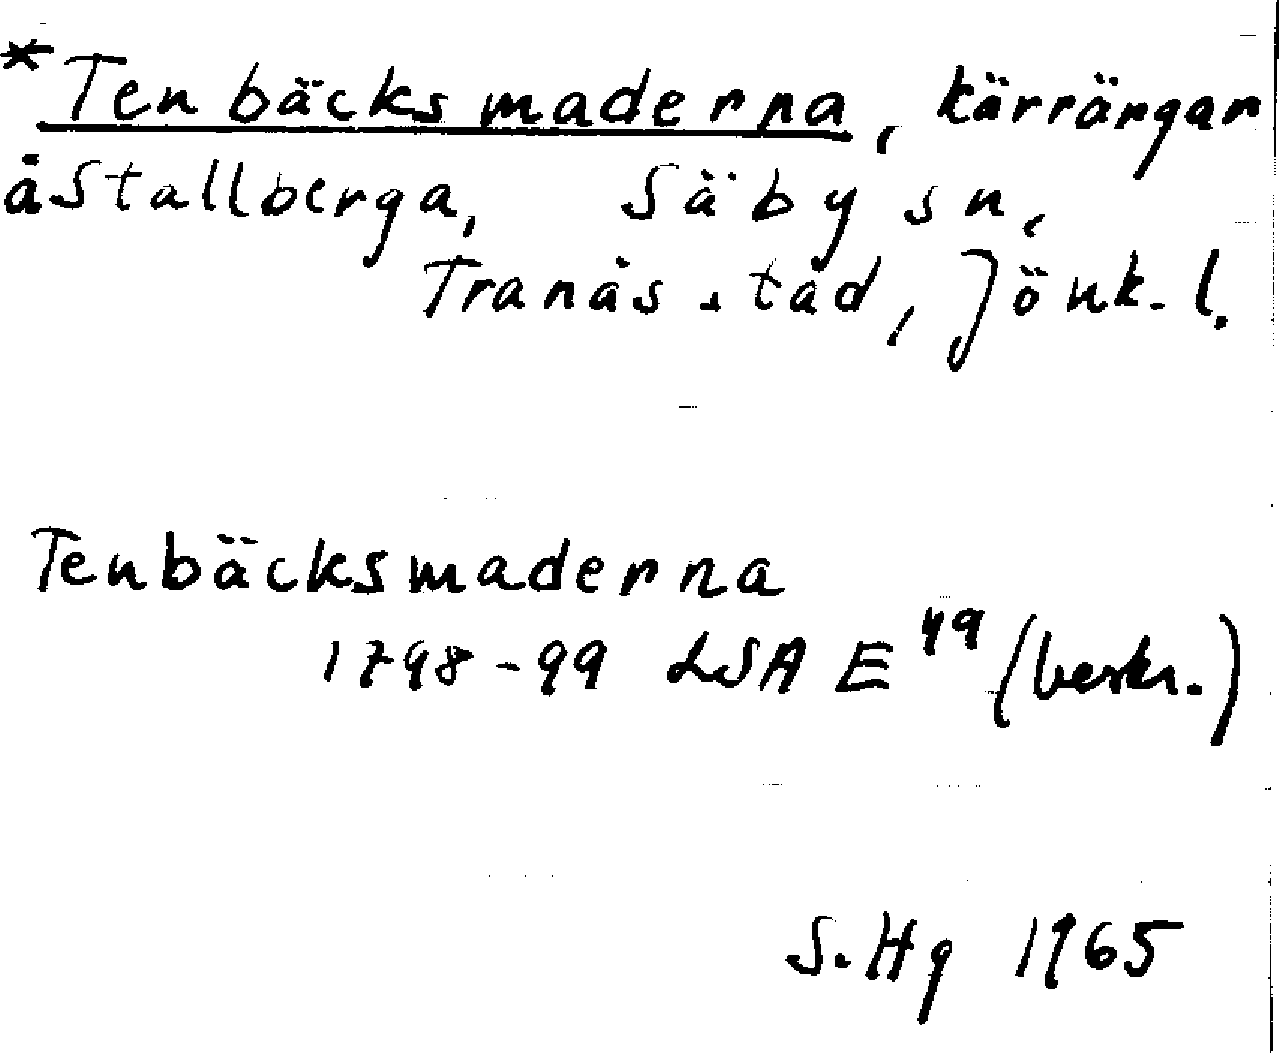 *Tenbäcksmaderna, kärrängar
å Stallberga, Säby sn,
Tranås stad, Jönk. l.
Tenbäcksmaderna
1798-99 LSA E 49 (beskr.)
S. Hg 1965